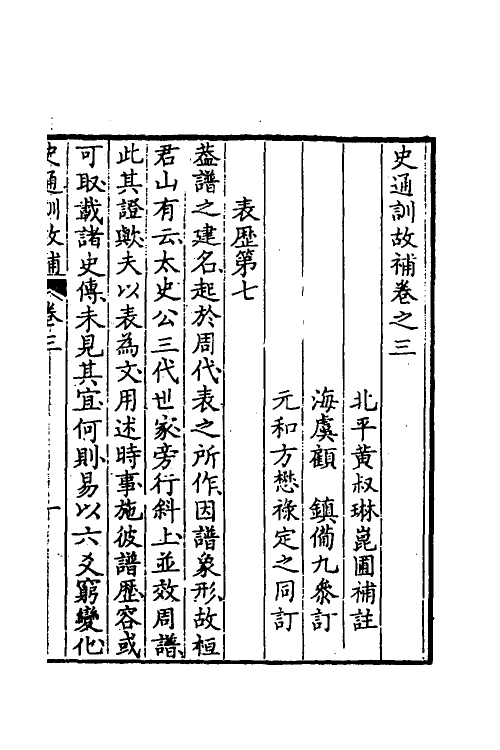 史通訓故補卷之三
北平黃叔琳崑圃補註
海虞顧　鎮備九參訂
元和方懋祿定之同訂
表歷第七
葢譜之建名起於周代表之所作因譜象形故桓
君山有云太史公三代世家旁行斜上並效周譜
此其證歟夫以表為文用述時事施彼譜歷容或
可取載諸史傳未見其宜何則易以六爻窮變化
史通訓故補　卷三　一